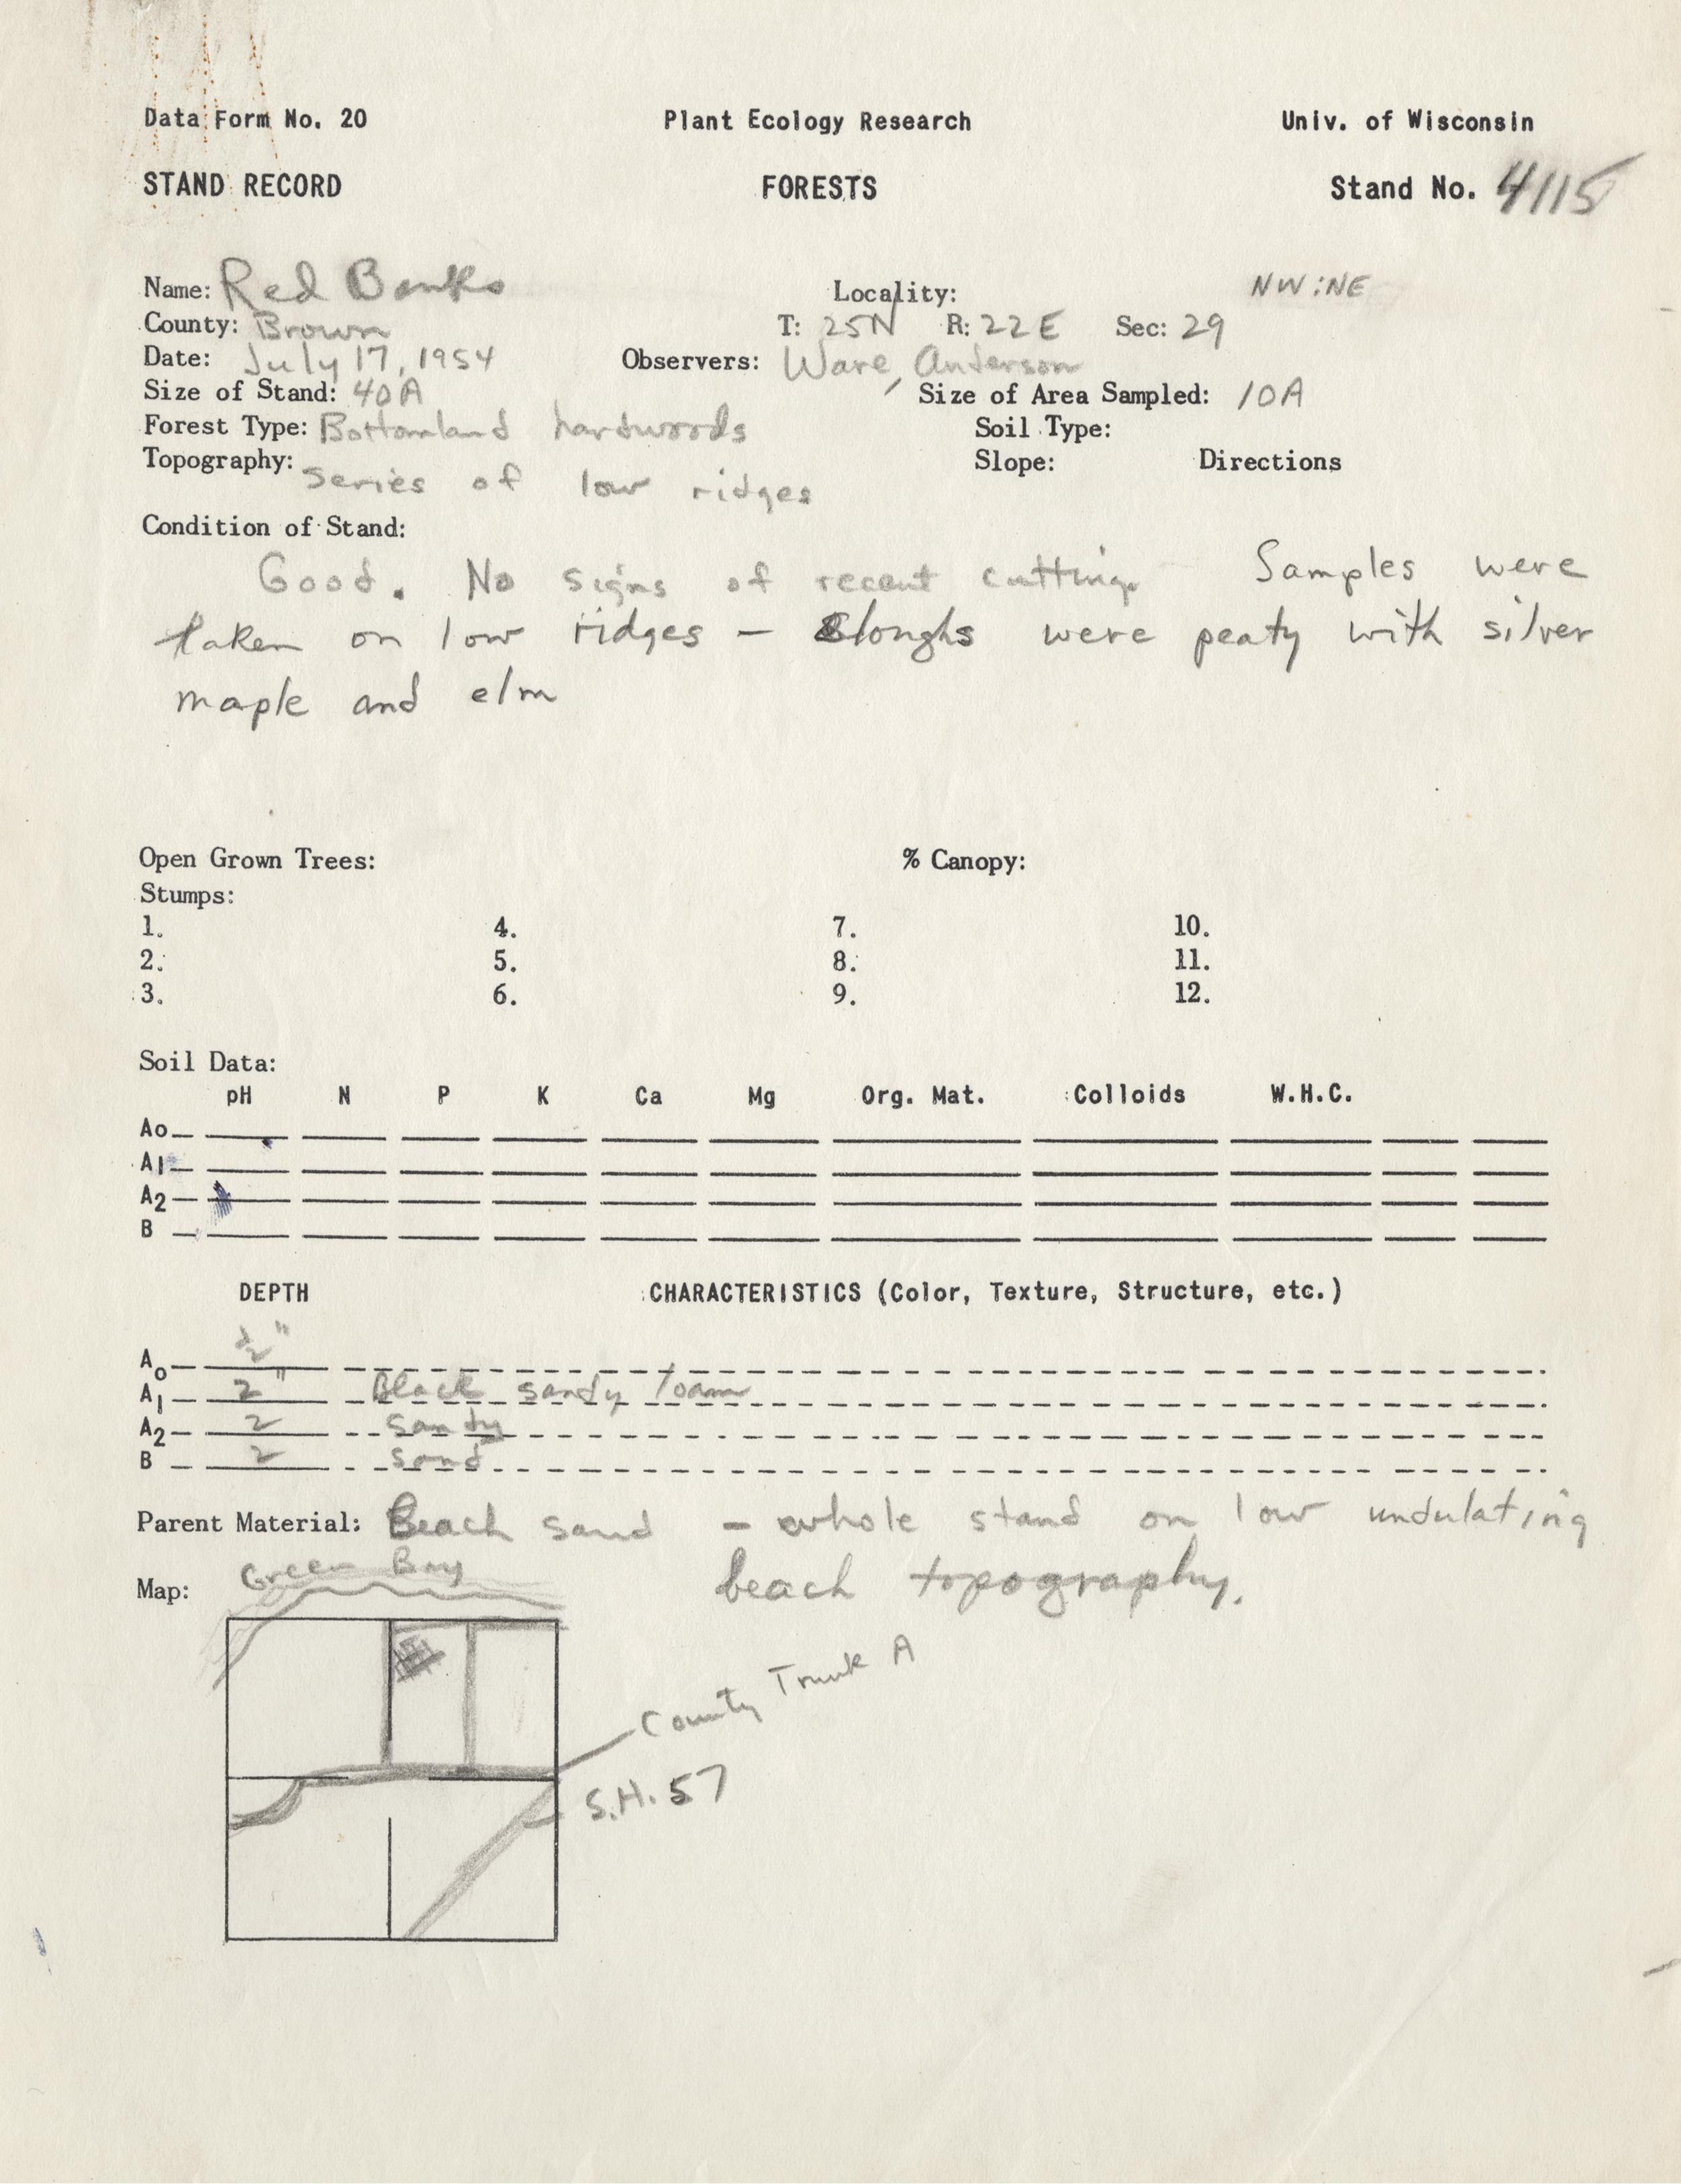 Data Form No. 20 Plant Ecology Research Univ. of Wisconsin
STAND RECORD FORESTS Stand No. 4115
Name: Red Banks Locality: NW:NE
County: Brown T: 25N R: 22E Sec: 29
Date: July 17, 1954 Observers: Ware, Anderson
Size of Stand: 40A Size of Area Sampled: 10A
Forest Type: Bottomland hardwoods Soil Type:
Topography: series of low ridges Slope: Directions
Condition of Stand:
Good. No signs of recent cutting. Samples were
taken on low ridges — Sloughs were peaty with silver
maple and elm
Open Grown Trees: % Canopy:
Stumps:
1. 4. 7. 10.
2. 5. 8. 11.
3. 6. 9. 12.
Soil Data:
pH N P K Ca Mg Org. Mat. Colloids W.H.C.
Ao
A1
A2
B
DEPTH CHARACTERISTICS (Color, Texture, Structure, etc.)
Ao ½"
A1 2" Black sandy loam
A2 2 sandy
B 2 sand
Parent Material: Beach sand — whole stand on low undulating
beach topography.
Map: Green Bay
County Trunk A
S.H. 57